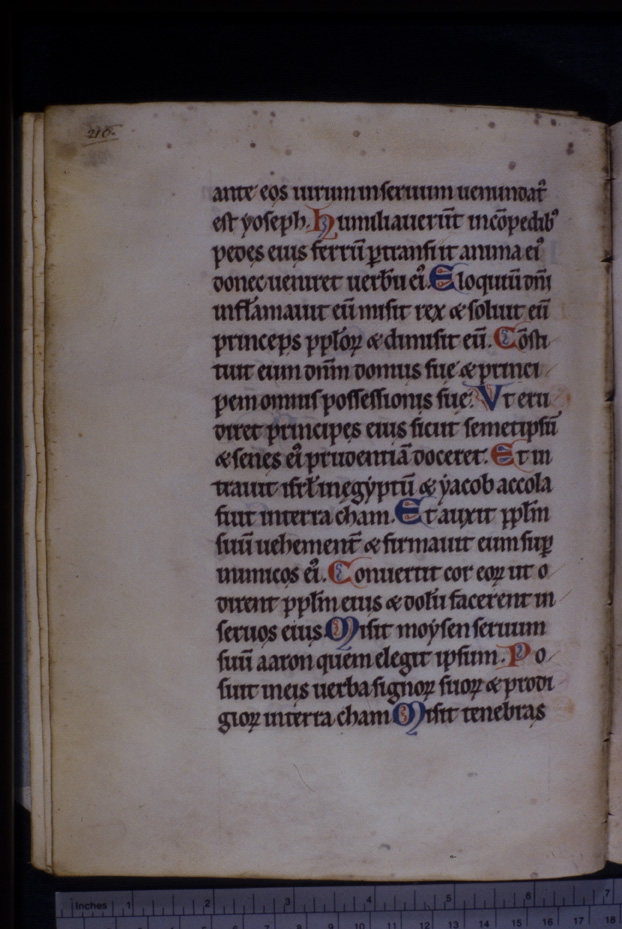 216.
ante eos uirum in seruum uenundat᷒
est yoseph. Humiliauerūt in cōpedib᷒
pedes eius ferrū ꝑtransiit anima ei᷒
donec ueniret uerbū ei᷒. Eloquiū dn̄i
inflāmauit eū misit rex & soluit eū
princeps pp̄loꝝ & dimisit eū. Cōsti
tuit eum dn̄m domus sue & princi
pem omnis possessionis sue. Vt eru
diret principes eius sicut semetipsū
& senes ei᷒ prudentiā doceret. Et in
trauit isrl̄ in egyptū & yacob accola
fuit in terra cham. Et auxit pp̄lm
suū uehement᷒ & firmauit eum sup̄
inimicos ei᷒. Conuertit cor eoꝝ ut o
dirent pp̄lm eius & dolū facerent in
seruos eius. Misit moysen seruum
suū aaron quem elegit ipsum. Po
suit in eis uerba signoꝝ suoꝝ & prodi
gioꝝ in terra cham. Misit tenebras
Inches 1 2 3 4 5 6 7
10 11 12 13 14 15 16 17 18